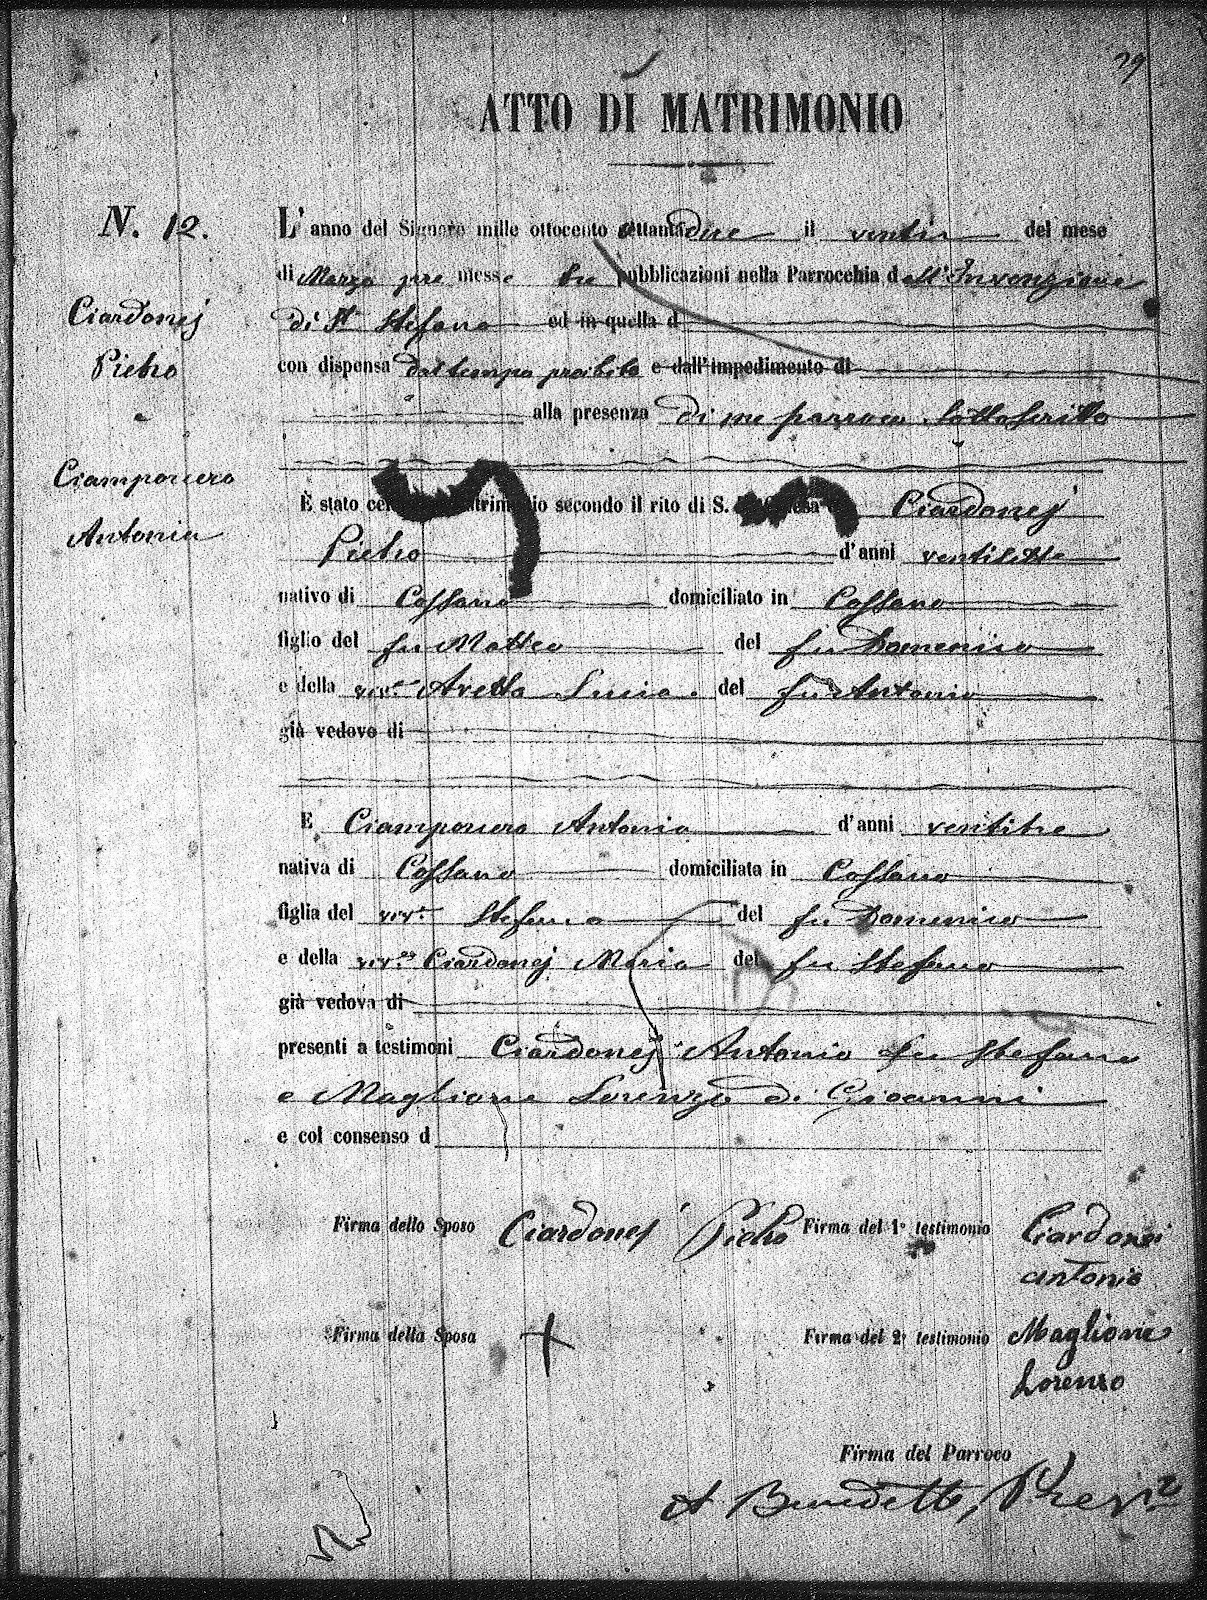 29
ATTO DI MATRIMONIO
N. 12.
Ciardonej
Pietro
Ciamporcero
Antonia
L' anno del Signore mille ottocento ottantadue il venti del mese
di Marzo pre messe tre pubblicazioni nella Parrocchia dell'Invenzione
di St Stefano ed in quella d
con dispensa dal tempo proibito e dall'impedimento di
alla presenza di me parroco sottoscritto
È stato matrimonio secondo il rito di S. Ciardonej
Pietro d'anni ventisette
nativo di Cossano domiciliato in Cossano
figlio del fu Matteo del fu Domenico
e della viv. Avetta Lucia. del fu Antonio
già vedovo di
E Ciamporcero Antonia d'anni ventitre
nativa di Cossano domiciliata in Cossano
figlia del viv. Stefano del fu Domenico
e della viv. Ciardonej Maria del fu Stefano
già vedova di
presenti a testimoni Ciardonej Antonio fu Stefano
e Maglione Lorenzo di Gioanni
e col consenso d
Firma dello Sposo Ciardonej Pietro Firma del 1° testimonio Ciardonei
antonio
Firma della Sposa + Firma del 2° testimonio Maglione
Lorenzo
Firma del Parroco
Benedetto